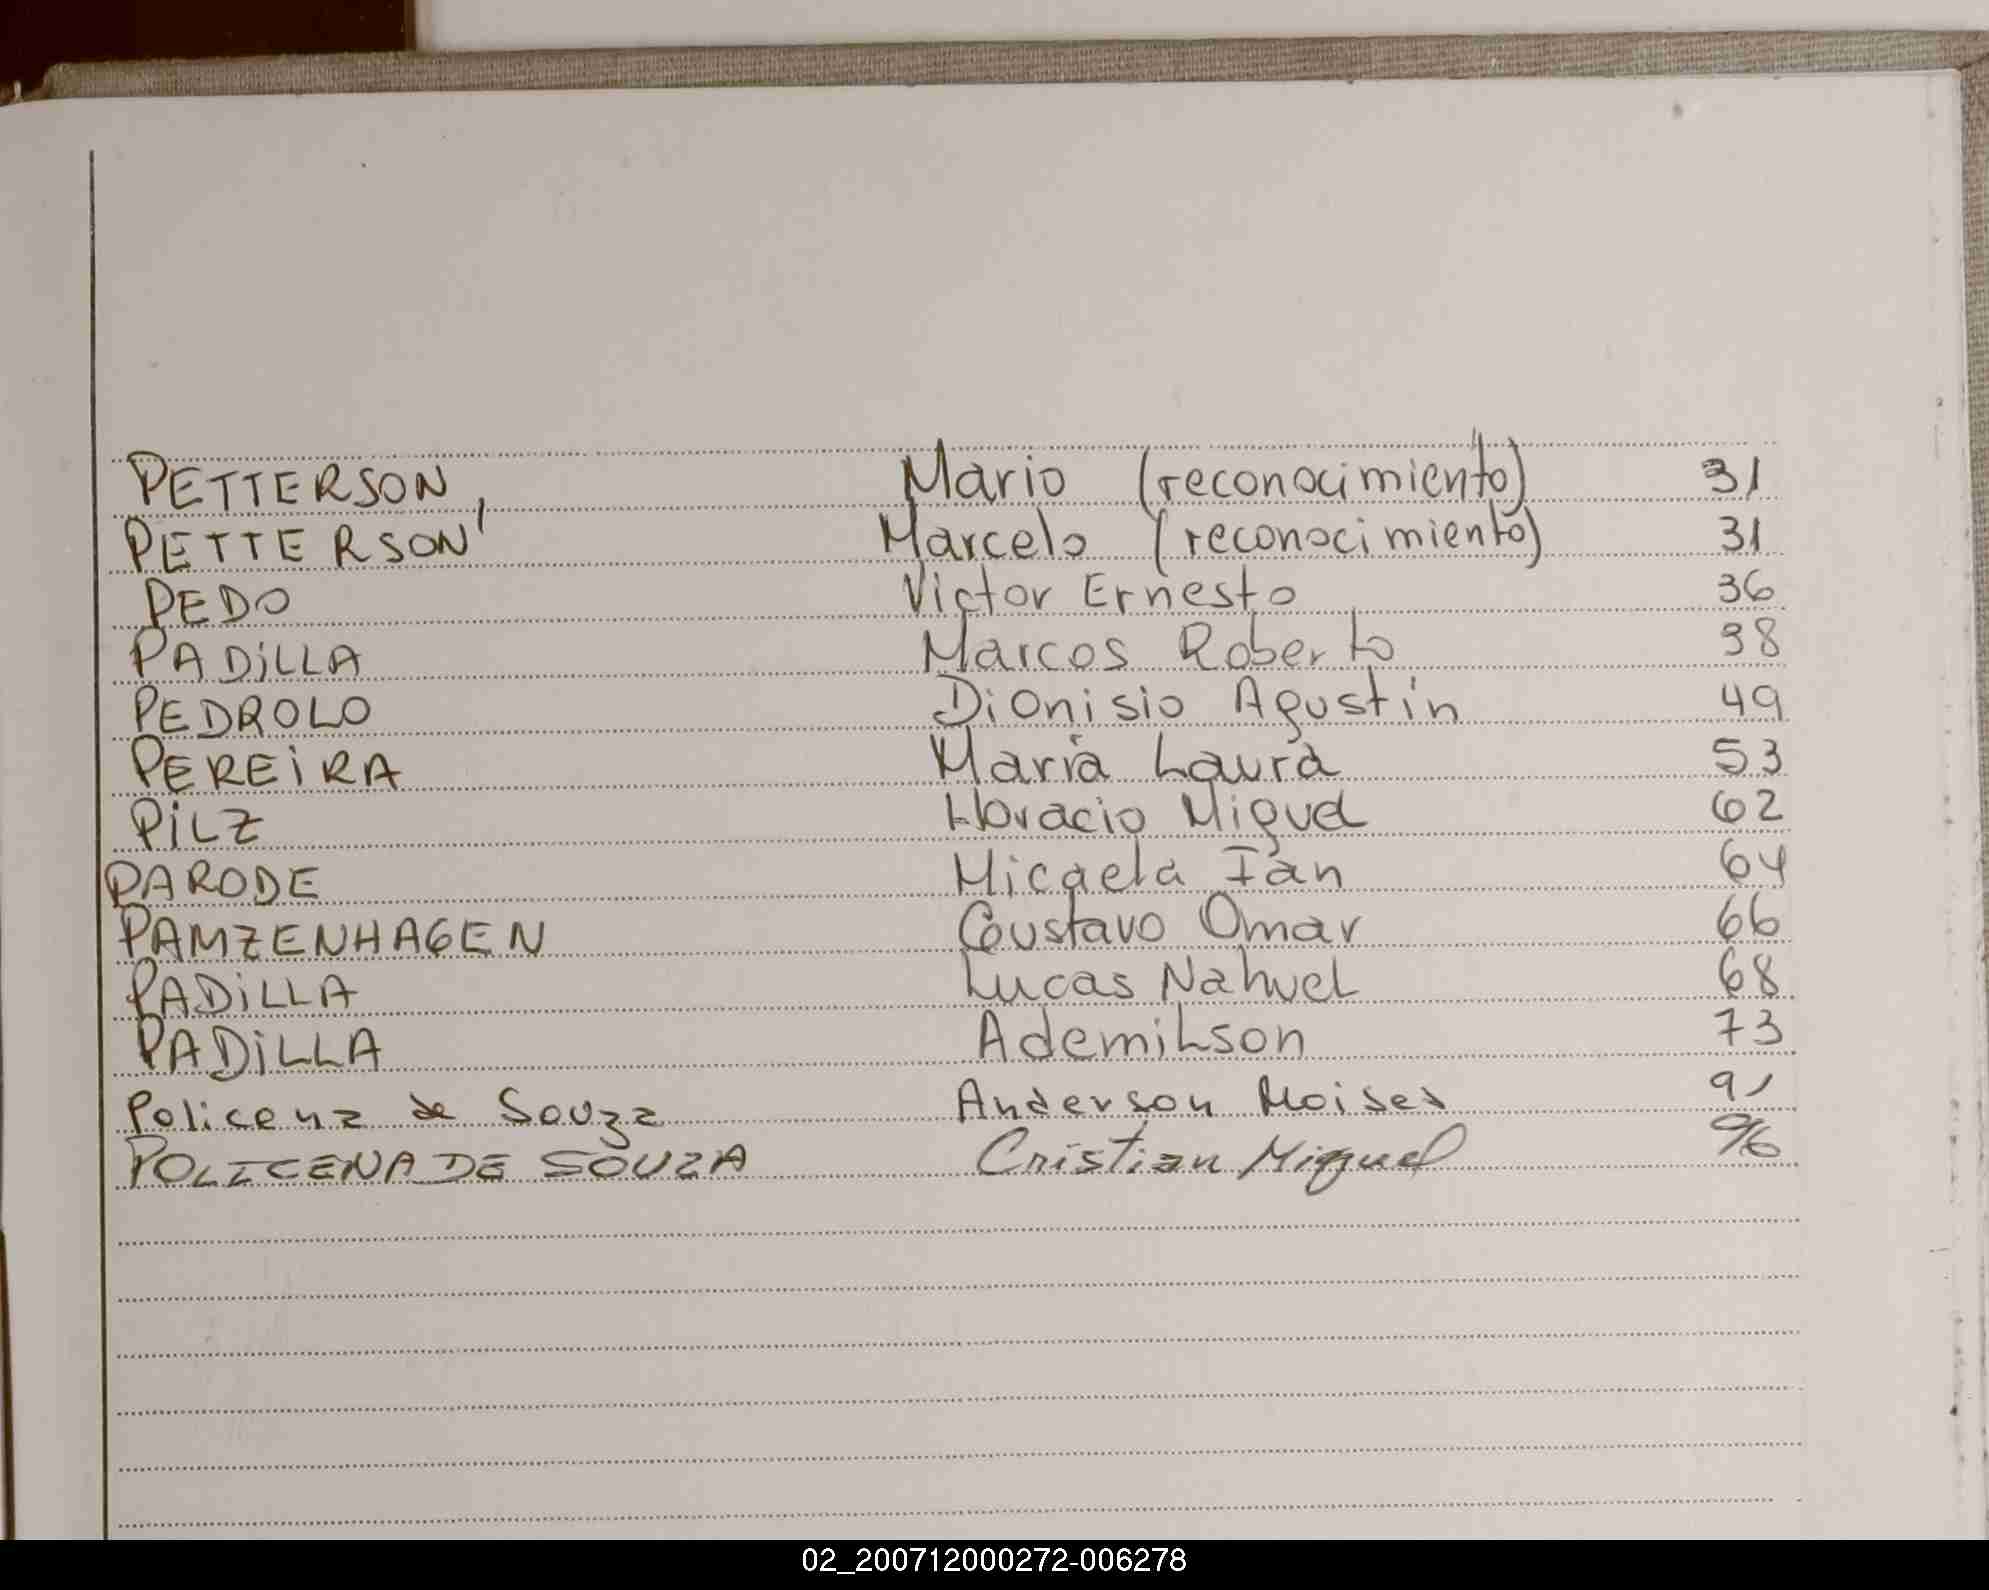 PETTERSON, Mario (reconocimiento) 31
PETTERSON, Marcelo (reconocimiento) 31
PEDO Victor Ernesto 36
PADiLLA Marcos Roberto 38
PEDROLO Dionisio Agustín 49
PEREiRA María Laura 53
PiLZ Horacio Miguel 62
PARODE Micaela Ian 64
PAMZENHAGEN Gustavo Omar 66
PADiLLA Lucas Nahuel 68
PADiLLA AdemiLson 73
Policena de Souza Anderson Moises 91
POLICENA DE SOUZA Cristian Miguel 96
02_200712000272-006278